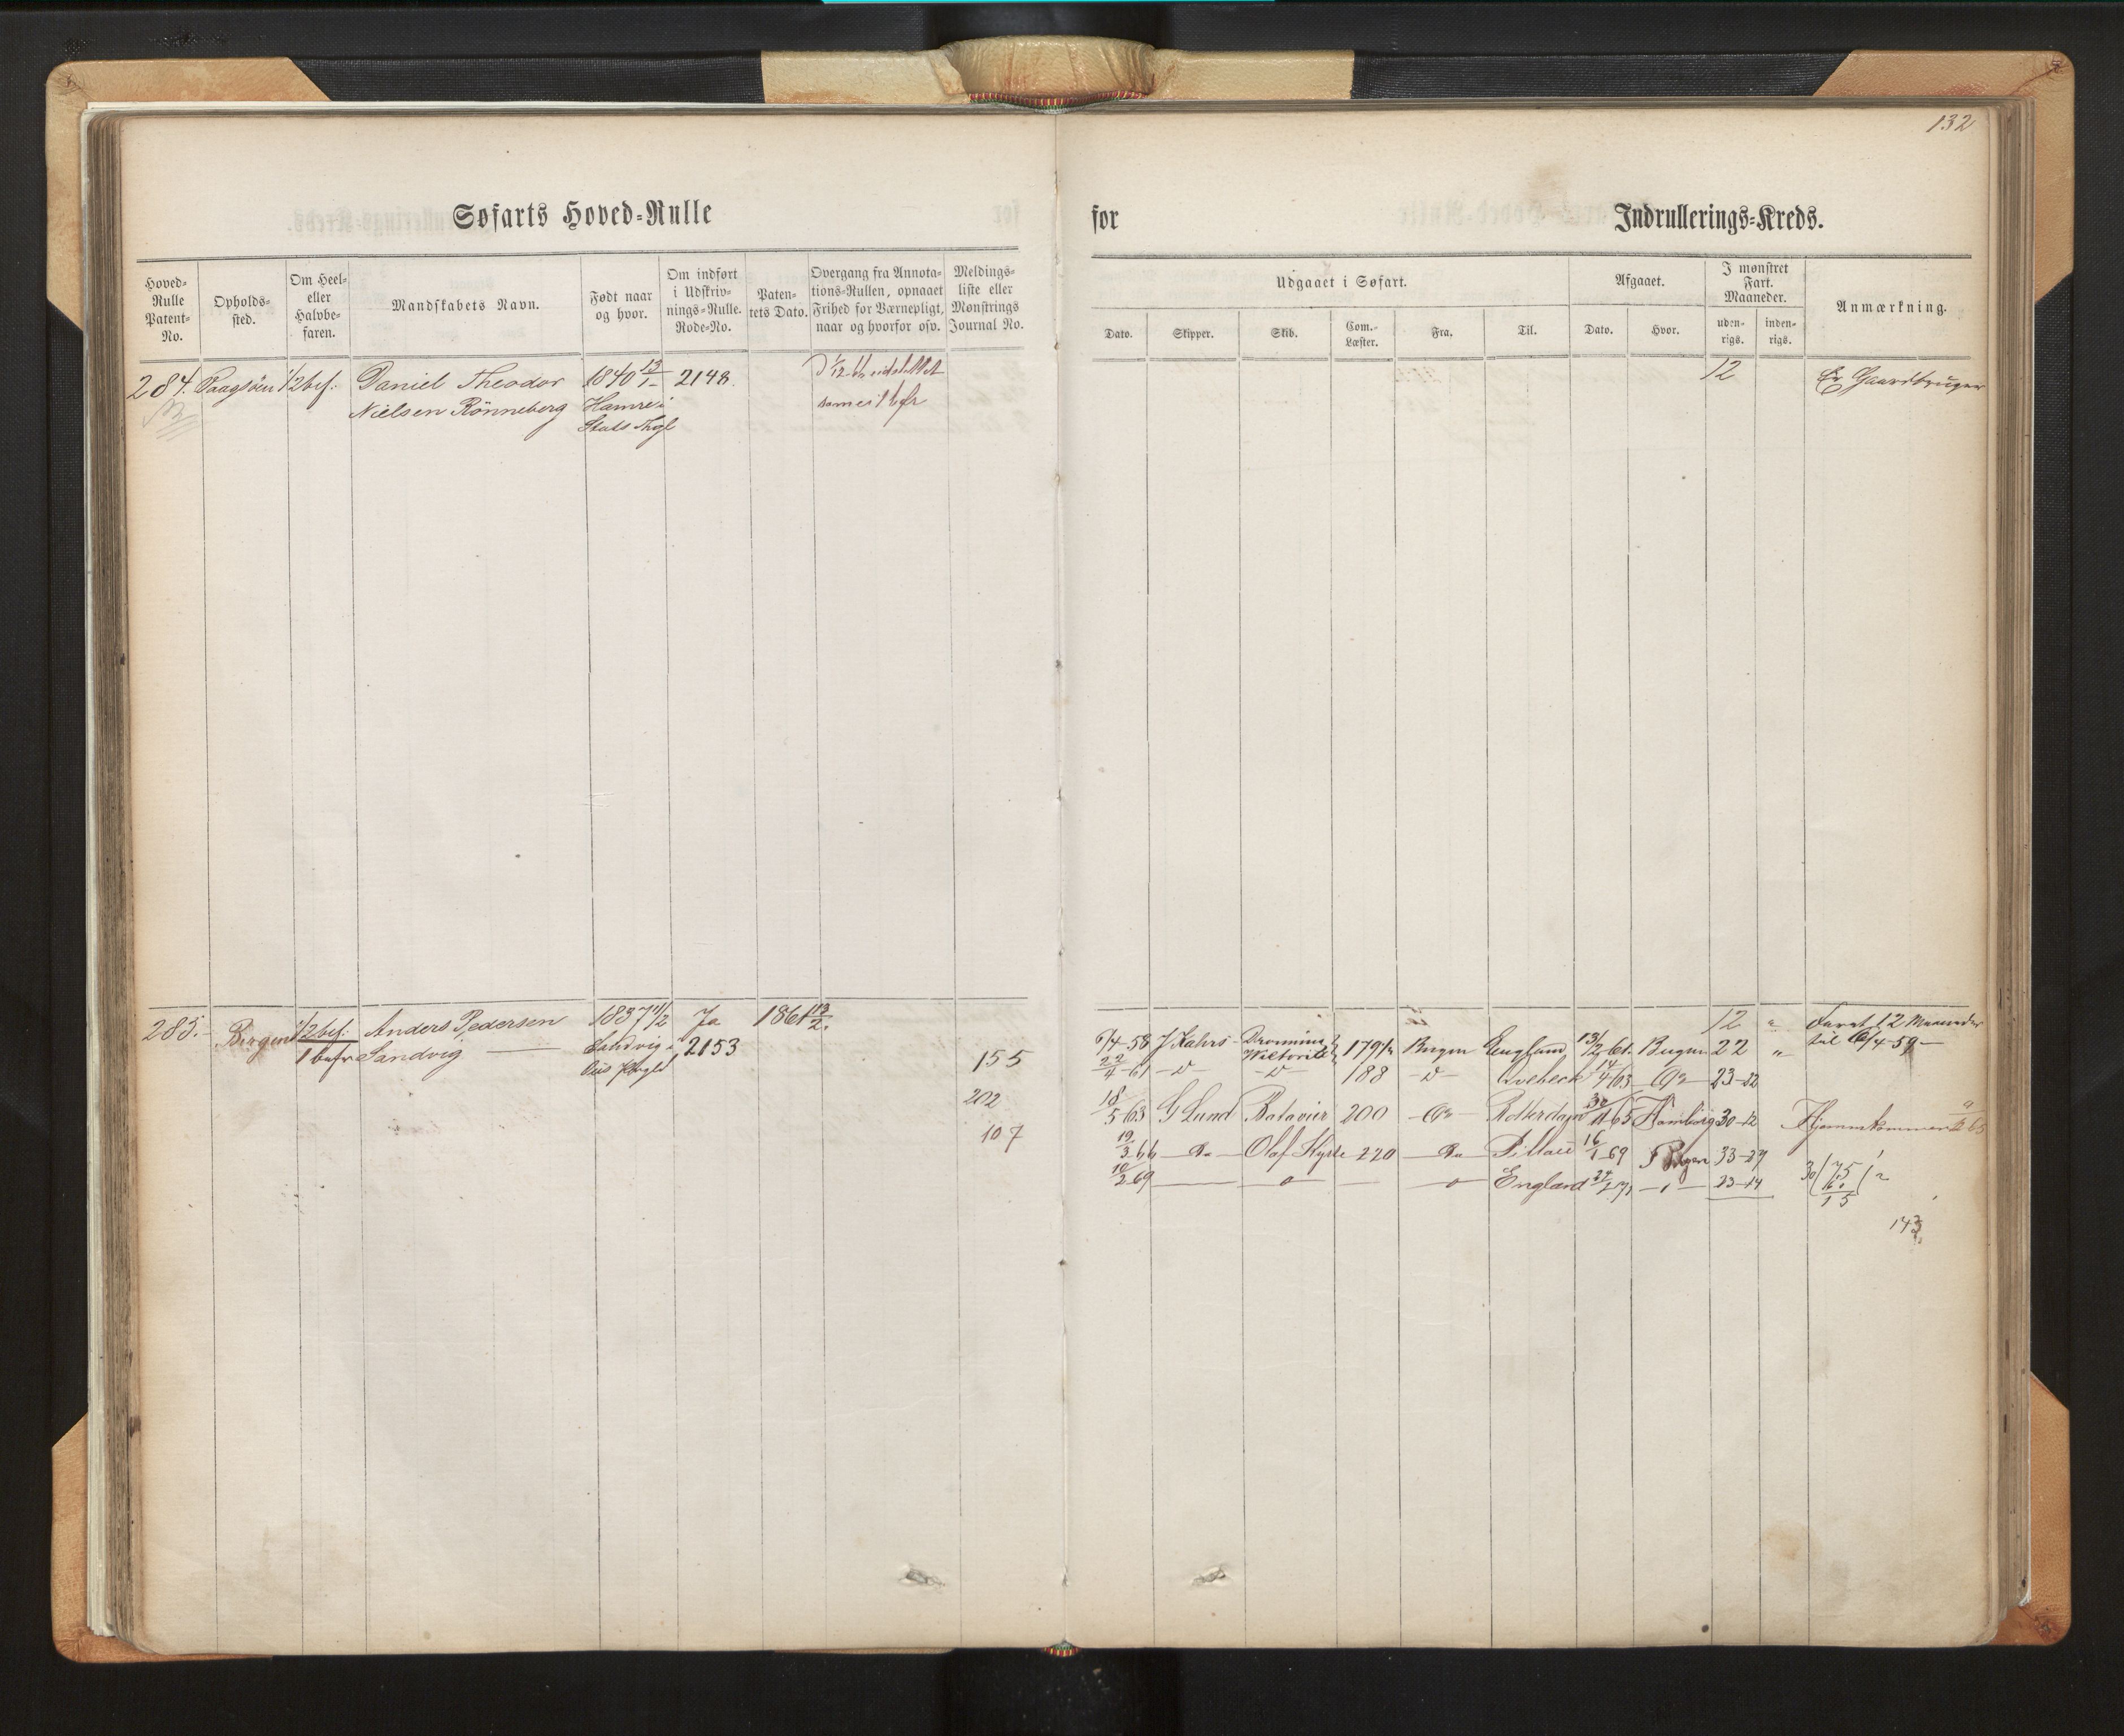 132
Søfarts Hoved-Rulle
for
Indrullerings-Kreds.
Hoved-Rulle Patent-No.
Opholds-sted.
Om Heel- eller Halvbe-faren.
Mandskabets Navn.
Født naar og hvor.
Om indført i Udskriv-nings-Rulle. Rode-No.
Paten-tets Dato.
Overgang fra Annota-tions-Rullen, opnaaet Frihed for Værnepligt, naar og hvorfor osv.
Meldings-liste eller Mønstrings Journal No.
Udgaaet i Søfart.
Afgaaet.
I mønstret Fart. Maaneder.
Anmærkning.
Dato.
Skipper.
Skib.
Com.-Læster.
Fra.
Til.
Dato.
Hvor.
uden-rigs.
inden-rigs.
284. Vaagsøen 1/2 bef. Daniel Theodor 1840 12/1 2148.
Nielsen Rönneberg Hamre i
Stats
12 Er Gaardbruger
285. Bergen 1/2 bef. Anders Pedersen 1837 11/2 Ja 1861 13/2.
1 befr Sandvig Sandvig 2153
155
202
107
12 " Faret 12 Maaneder
6/4-58 J Kahrs Dronning 179 1/2 Bergen England 13/2 61. Bergen 22 " til 6/4-59
Viktoria
22/4-61 -d- -d- 188 -d- Lvebeck 14/4 63 23-22
18/5 63 G Lund Batavier 200 Rotterdam 30/11 65 Hamborg 30-12 Hjemkommen
19/3 66 Do Olaf Kyrre 220 Do Pillau 16/1-69 Bergen 33-27
10/2 69 England 24/1 71 23-14
30 (75 (2
60
15
143